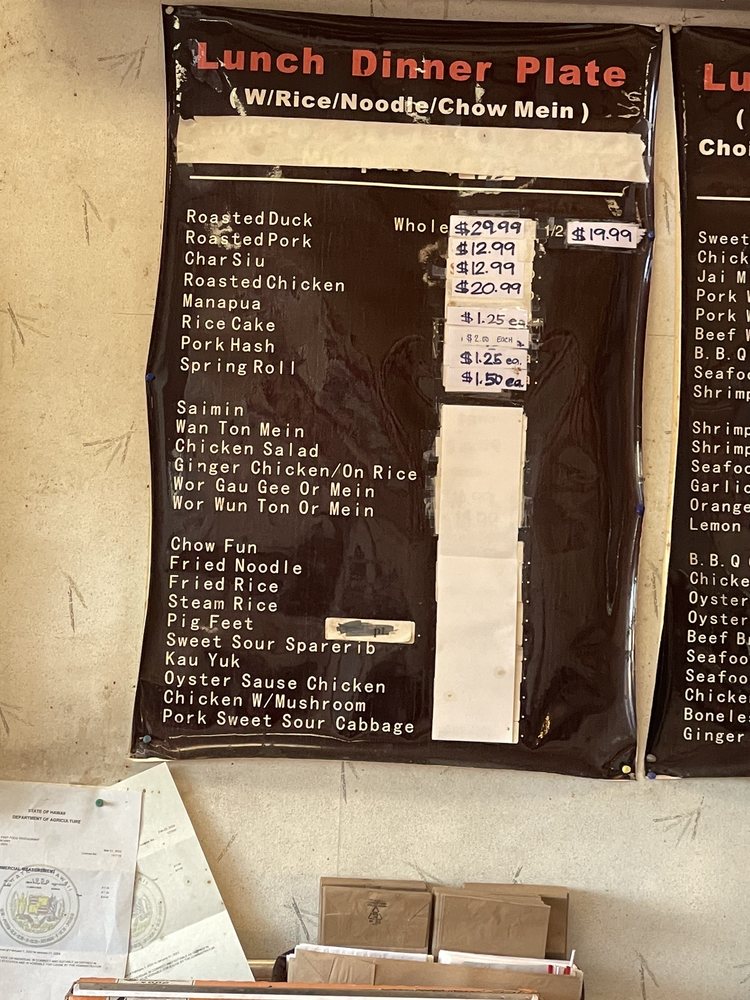 Lunch Dinner Plate
(W/Rice/Noodle/Chow Mein)
Roasted Duck Whole $29.99 1/2 $19.99
Roasted Pork $12.99
Char Siu $12.99
Roasted Chicken $20.99
Manapua $1.25 ea
Rice Cake $2.00 EACH
Pork Hash $1.25 ea.
Spring Roll $1.50 ea
Saimin
Wan Ton Mein
Chicken Salad
Ginger Chicken/On Rice
Wor Gau Gee Or Mein
Wor Wun Ton Or Mein
Chow Fun
Fried Noodle
Fried Rice
Steam Rice
Pig Feet
Sweet Sour Sparerib
Kau Yuk
Oyster Sause Chicken
Chicken W/Mushroom
Pork Sweet Sour Cabbage
Lu
(
Choi
Sweet
Chick
Jai M
Pork W
Pork W
Beef W
B.B.Q
Seafoo
Shrimp
Shrimp
Shrimp
Seafoo
Garlic
Orange
Lemon
B.B.Q
Chicke
Oyster
Oyster
Beef B
Seafoo
Seafoo
Chicke
Bonele
Ginger
STATE OF HAWAII
DEPARTMENT OF AGRICULTURE